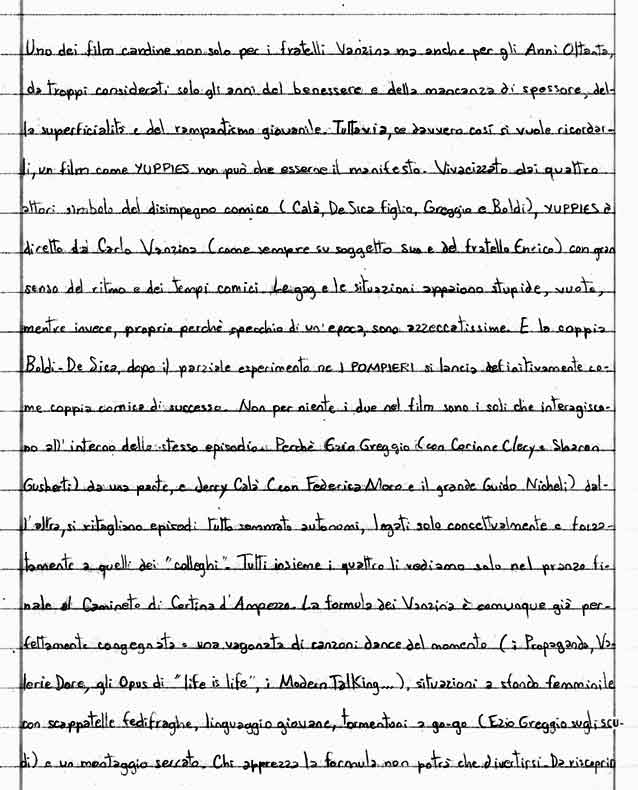 Uno dei film cardine non solo per i fratelli Vanzina ma anche per gli Anni Ottanta,
da troppi considerati solo gli anni del benessere e della mancanza di spessore, del-
la superficialità e del rampantismo giovanile. Tuttavia, se davvero così si vuole ricordar-
li, un film come YUPPIES non può che esserne il manifesto. Vivacizzato dai quattro
attori simbolo del disimpegno comico (Calà, De Sica figlio, Greggio e Boldi), YUPPIES è
diretto da Carlo Vanzina (come sempre su soggetto suo e del fratello Enrico) con gran
senso del ritmo e dei tempi comici. Le gag e le situazioni appaiono stupide, vuote,
mentre invece, proprio perchè specchio di un'epoca, sono azzeccatissime. E la coppia
Boldi-De Sica, dopo il parziale esperimento ne I POMPIERI si lancia definitivamente co-
me coppia comica di successo. Non per niente i due nel film sono i soli che interagisco-
no all'interno dello stesso episodio. Perchè Ezio Greggio (con Corinne Clery e Sharon
Gusberti) da una parte, e Jerry Calà (con Federica Moro e il grande Guido Nicheli) dal-
l'altra, si ritagliano episodi tutto sommato autonomi, legati solo concettualmente e forza-
tamente a quelli dei "colleghi". Tutti insieme i quattro li vediamo solo nel pranzo fi-
nale al Camineto di Cortina d'Ampezzo. La formula dei Vanzina è comunque già per-
fettamente congegnata: una vagonata di canzoni dance del momento (i Propaganda, Va-
lerie Dore, gli Opus di "life is life", i Modern Talking...), situazioni a sfondo femminile
con scappatelle fedifraghe, linguaggio giovane, tormentoni a go-go (Ezio Greggio sugli scu-
di) e un montaggio serrato. Chi apprezza la formula non potrà che divertirsi. Da riscoprire